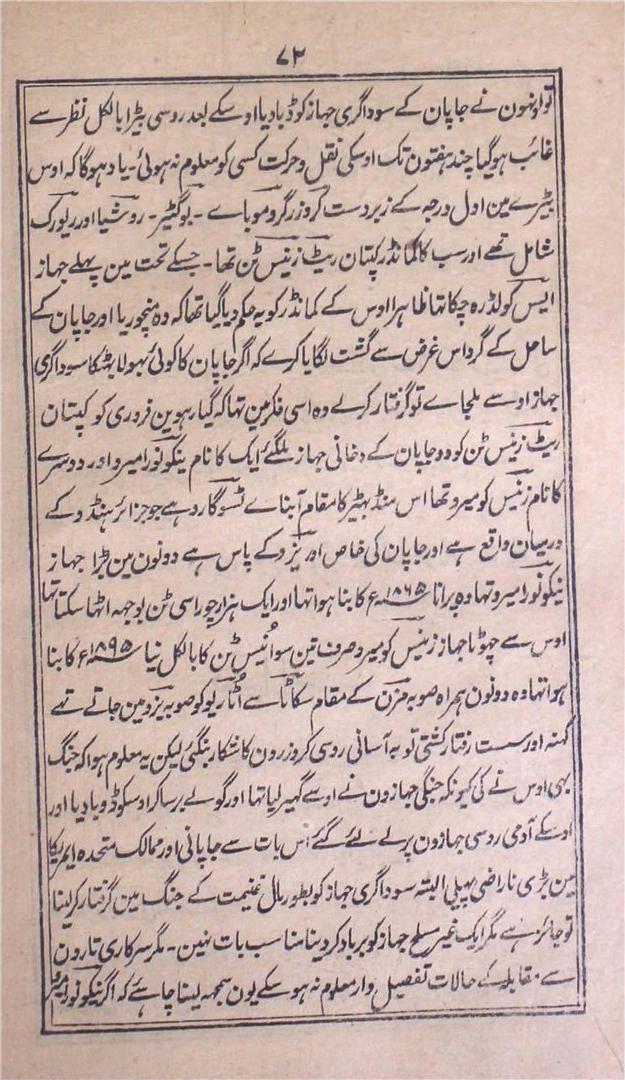 ۷۳
تو اونہون نے جاپان کے سوداگری جہاز کو ڈبا دیا اوسکے بعد روسی بیڑا بالکل نظر سے
غائب ہوگیا چند ہفتون تک اوسکی نقل وحرکت کسی کو معلوم نہ ہوئی۔ یاد ہوگا کہ اوس
بیڑے مین اول درجہ کے زبردست کروزر گروموباے۔ بوگیٹر۔ روشیا اور ریورک
شامل تھے اور سب کا کمانڈر کپتان ریٹ زنیس ٹن تھا۔ جسکے تحت مین پہلے جہاز
ایس کولڈ رہ چکا تہا ظاہرا اوس کے کمانڈر کو یہ حکم دیا گیا تھا کہ وہ منچوریا اور جاپان کے
ساحل کے گرد اس غرض سے گشت لگایا کرے کہ اگر جاپان کا کوئی بہولا بہٹکا سوداگری
جہاز اوسے ملجاے تو گرفتار کرلے وہ اسی فکر مین تہا کہ گیارہوین فروری کو کپتان
ریٹ زنیس ٹن کو دو جاپان کے دخانی جہاز ملگئے ایک کا نام ینکونورا میرو اور دوسرے
کا نام زنیس کو میرو تھا اس منڈ بہیڑ کا مقام آبناے ٹسوگارو ہے جو جزائر ہنڈو کے
درمیان واقع ہے اور جاپان کی خاص اور یزو کے پاس ہے دونون مین بڑا جہاز
نیکونورا میرو تہا وہ پرانا ۱۸۶۵ء کا بنا ہوا تہا اور ایک ہزار چوراسی ٹن بوجہہ اٹہا سکتا تہا
اوس سے چہوٹا جہاز زنیس کو میرو صرف تین سو انیس ٹن کا بالکل نیا ۱۸۹۵ء کا بنا
ہوا تہا وہ دونون ہمراہ صوبہ مزن کے مقام سکاٹا سے اُٹاریو کو صوبہ یزو مین جاتے تہے
کہنہ اور سست رفتار کشتی تو بہ آسانی روسی کروزرون کا شکار بنگئی لیکن یہ معلوم ہوا کہ جنگ
بہی اوس نے کی کیونکہ جنگی جہازون نے اوسے گہیر لیا تہا اور گولے برسا کر اوسکو ڈوبا دیا اور
اوسکے آدمی روسی جہازون پر لے لئے گئے اس بات سے جاپانی اور ممالک متحدہ امریکا
مین بڑی ناراضی پہیلی البتہ سوداگری جہاز کو بطور مال غنیمت کے جنگ مین گرفتار کرلینا
تو جائز ہے مگر ایک غیر مسلح جہاز کو برباد کر دینا مناسب بات نہین۔ مگر سرکاری تارون
سے مقابلہ کے حالات تفصیل وار معلوم نہ ہو سکے یون سمجہہ لینا چاہئے کہ اگر نیکونورا میرو